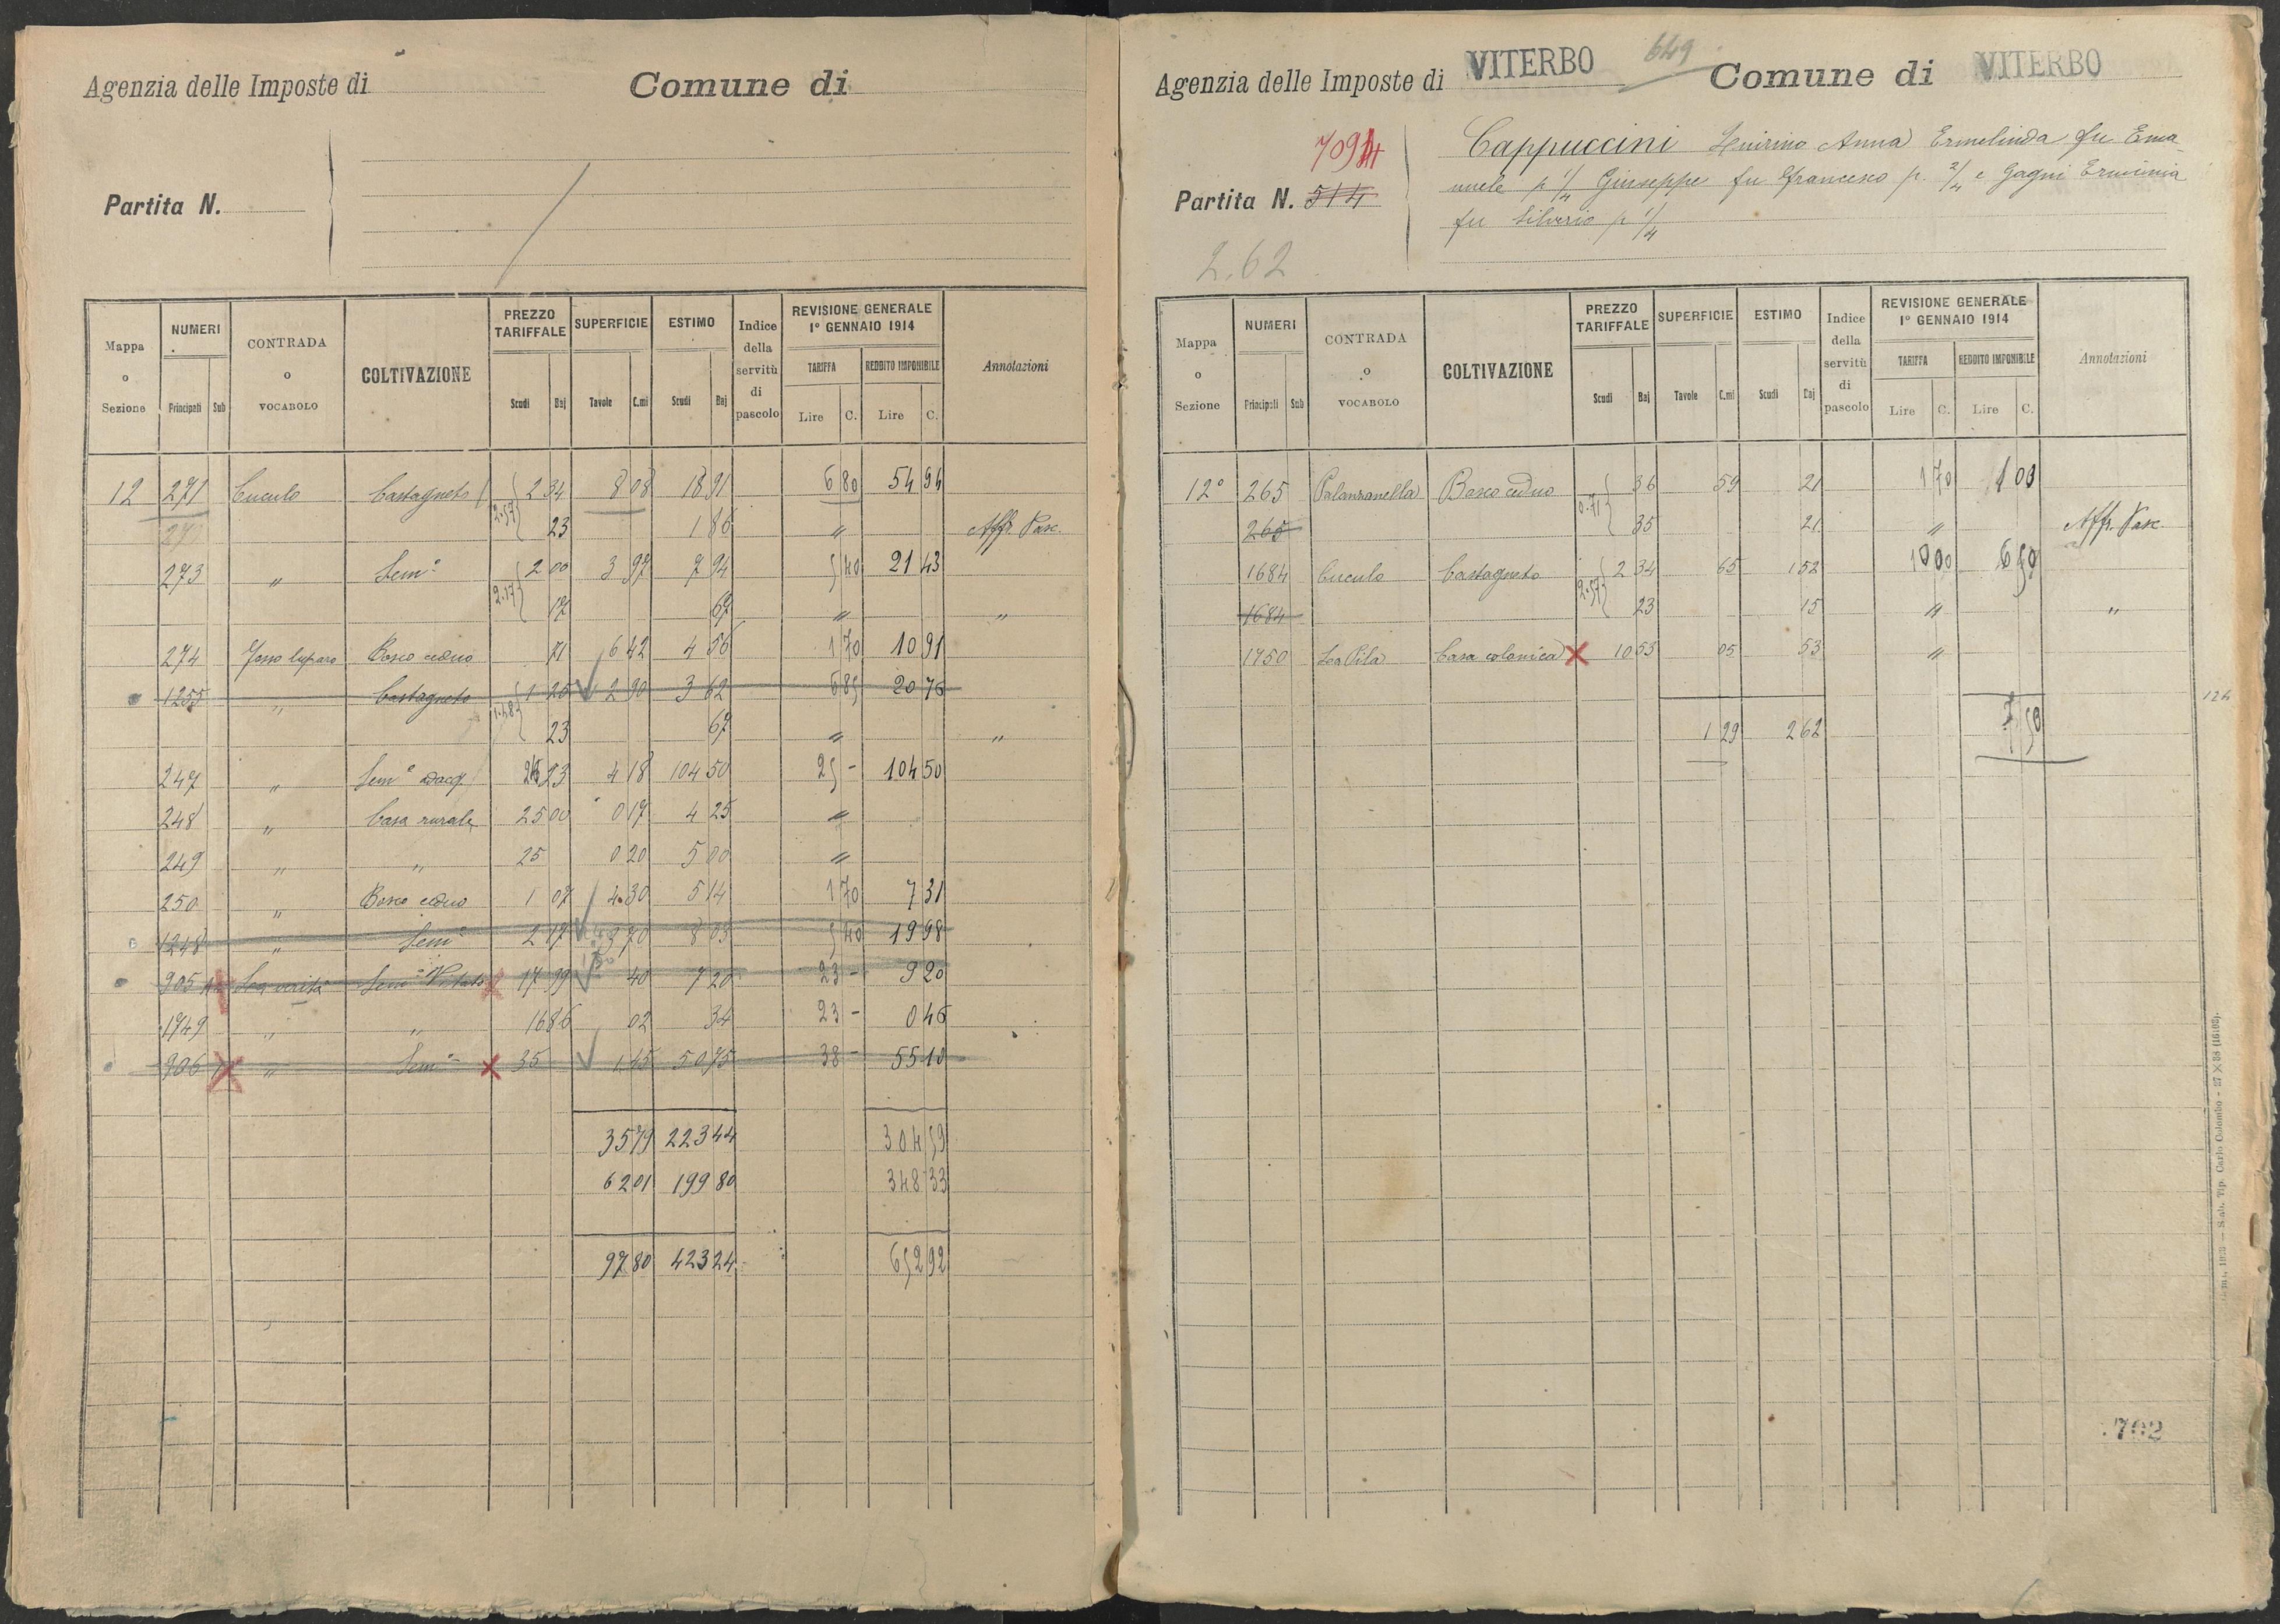 Agenzia delle Imposte di
Comune di
Partita N.
Mappa o Sezione
NUMERI
Principali Sub
CONTRADA o VOCABOLO
COLTIVAZIONE
PREZZO TARIFFALE
Scudi Baj
SUPERFICIE
Tavole C.mi
ESTIMO
Scudi Baj
Indice della servitù di pascolo
REVISIONE GENERALE 1° GENNAIO 1914
TARIFFA
Lire C.
REDDITO IMPONIBILE
Lire C.
Annotazioni
12 271 Cuculo Castagneto 2.57 2 34 8 08 18 91 6 80 54 94
23 1 86 " Aff. Pasc.
273 " Sem° 2.17 2 00 3 97 7 94 5 40 21 43
17 67 " "
274 Fosso luparo Bosco ceduo 71 6 42 4 56 1 70 10 91
1255 " Castagneto 1.48 1 25 2 90 3 62 6 85 20 76
23 67 " "
247 " Sem° adacq. 25 23 4 18 104 50 25 - 104 50
248 " Casa rurale 25 00 0 17 4 25 "
249 " " 25 0 20 5 00 "
250 " Bosco ceduo 1 07 4.30 5 14 1 70 7 31
1248 " Sem° 2 17 3 70 8 03 5 40 19 98
905 La verità Sem° Vitato 17 99 40 7 20 23 - 9 20
1749 " " 16 86 02 34 23 - 0 46
906 " Sem° 35 1 45 50 75 38 - 55 10
35 79 223 44 304 59
62 01 199 80 348 33
97 80 423 24 652 92
Agenzia delle Imposte di VITERBO
649
Comune di VITERBO
7094
Partita N. 514
2.62
Cappuccini Quirino Anna Ermelinda fu Ema
nuele p 1/4 Giuseppe fu Francesco p. 2/4 e Gagni Erminia
fu Silverio p 1/4
Mappa o Sezione
NUMERI
Principali Sub
CONTRADA o VOCABOLO
COLTIVAZIONE
PREZZO TARIFFALE
Scudi Baj
SUPERFICIE
Tavole C.mi
ESTIMO
Scudi Baj
Indice della servitù di pascolo
REVISIONE GENERALE 1° GENNAIO 1914
TARIFFA
Lire C.
REDDITO IMPONIBILE
Lire C.
Annotazioni
12° 265 Palanzanella Bosco ceduo 0.71 36 59 21 1 70 1 00
265 35 21 " Aff. Pasc.
1684 Cuculo Castagneto 2.57 2 34 65 1 52 10 00 6 50
1684 23 15 " "
1750 La Pila Casa colonica 10 53 05 53 "
1 29 2 62 7 50
124
702
Stab. Tip. Carlo Colombo - 27 × 38 (16103).